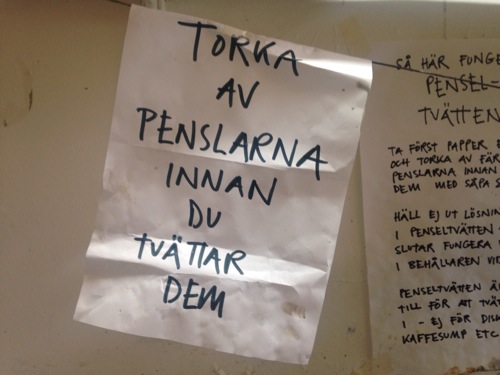 TORKA
AV
PENSLARNA
INNAN
DU
TVÄTTAR
DEM
SÅ HÄR
PENSEL-
TVÄTTEN
TA FÖRST PAPPER
OCH TORKA AV
PENSLARNA INNAN
DEM MED SÅPA
HÄLL EJ UT
I PENSELTVÄTTEN
SLUTAR FUNGERA
I BEHÅLLAREN
PENSELTVÄTTEN
TILL FÖR ATT
I - EJ FÖR
KAFFESUMP ETC